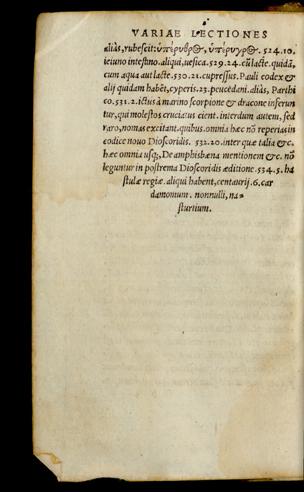 VARIAE LECTIONES
aliâs, rubescit: ὑπέρυθρ☉, ὑπέρυγρ☉. 524.10.
ieiuno intestino. aliqui, uesica. 529.24. cũ lacte. quidã,
cum aqua aut lacte. 530.21. cupressus. Pauli codex &
alij quidam habẽt, cyperis. 23. peucedani. aliâs, Parthi
co. 531.2. ictus à marino scorpione & dracone inferun
tur, qui molestos cruciatus cient. interdum autem, sed
raro, nomas excitant. quibus. omnia hæc nõ reperias in
codice nouo Dioscoridis. 532.20. inter quæ talia &c.
hæc omnia usq;, De amphisbæna mentionem &c. nõ
leguntur in postrema Dioscoridis æditione. 534.5. ha
stulæ regiæ. aliqui habent, centaurij. 6. car
damomum. nonnulli, na-
sturtium.